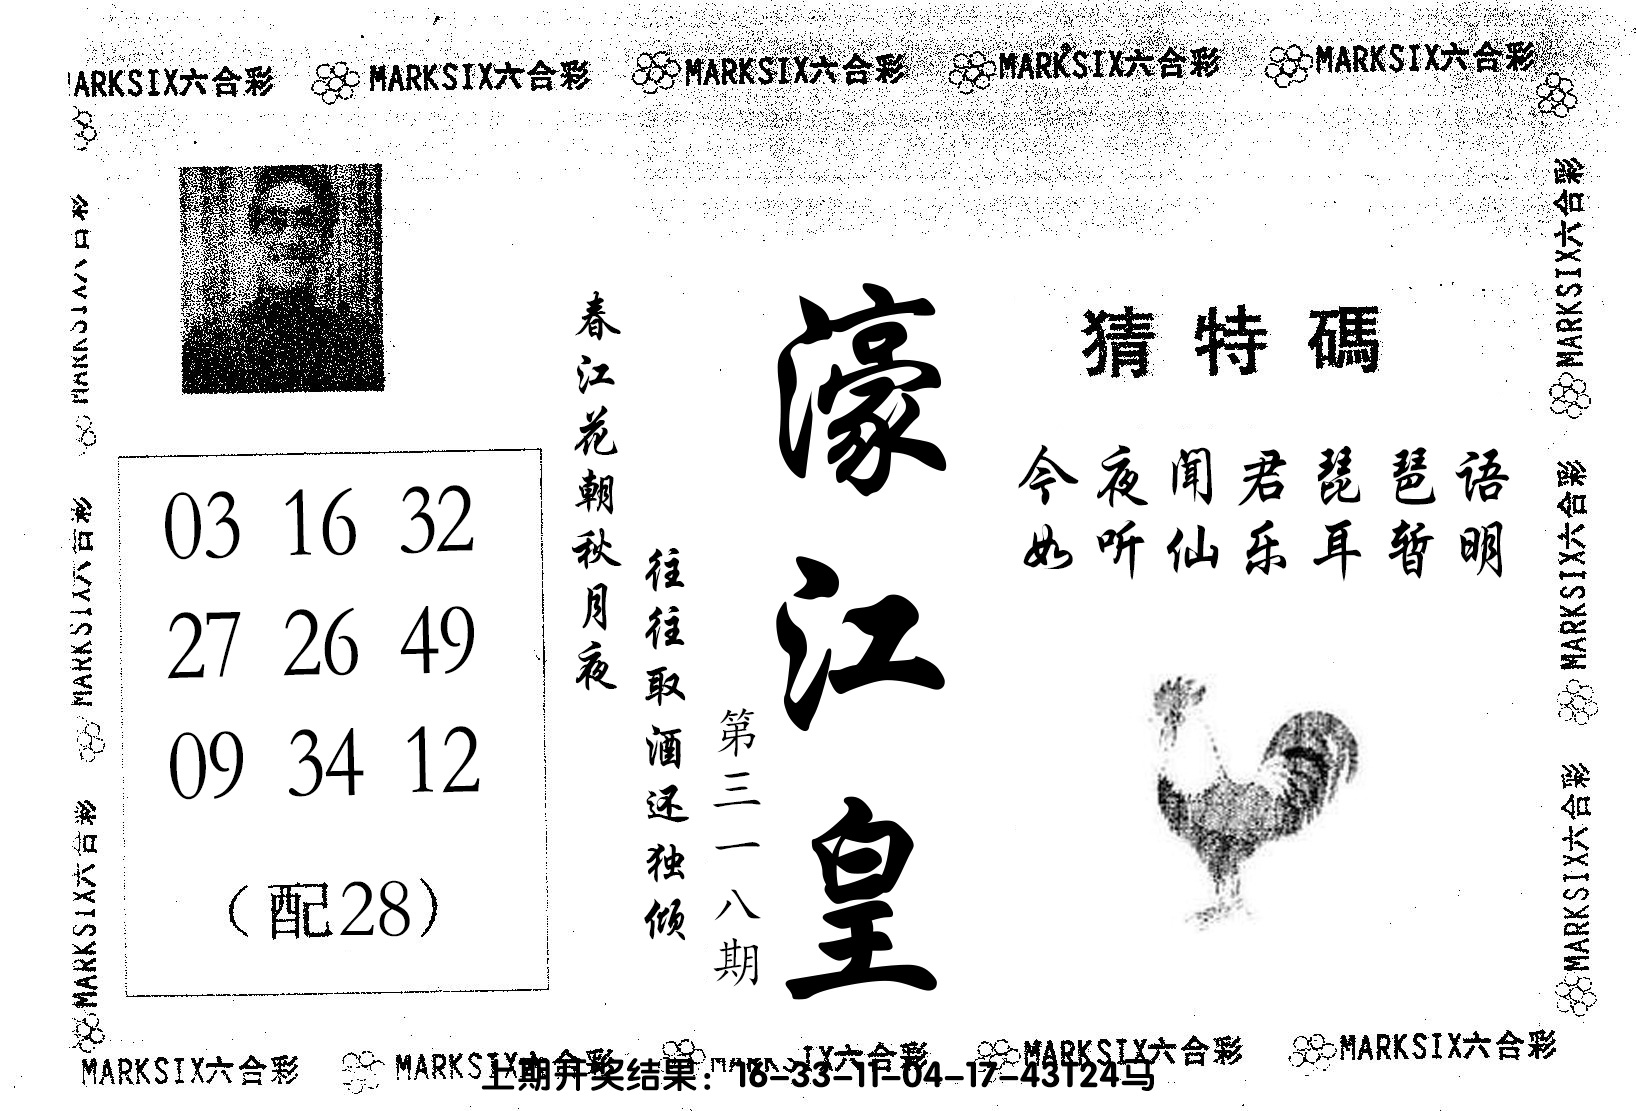 MARKSIX六合彩 MARKSIX六合彩 MARKSIX六合彩 MARKSIX六合彩
猜特碼
今夜闻君琵琶语
如听仙乐耳暂明
濠江皇
第三一八期
春江花朝秋月夜
往往取酒还独倾
03 16 32
27 26 49
09 34 12
（配28）
MARKSIX六合彩
MARKSIX六合彩
MARKSIX六合彩
MARKSIX六合彩
MARKSIX六合彩
MARKSIX六合彩 MARKSIX六合彩 MARKSIX六合彩
上期开奖结果：16-33-11-04-17-43T24马